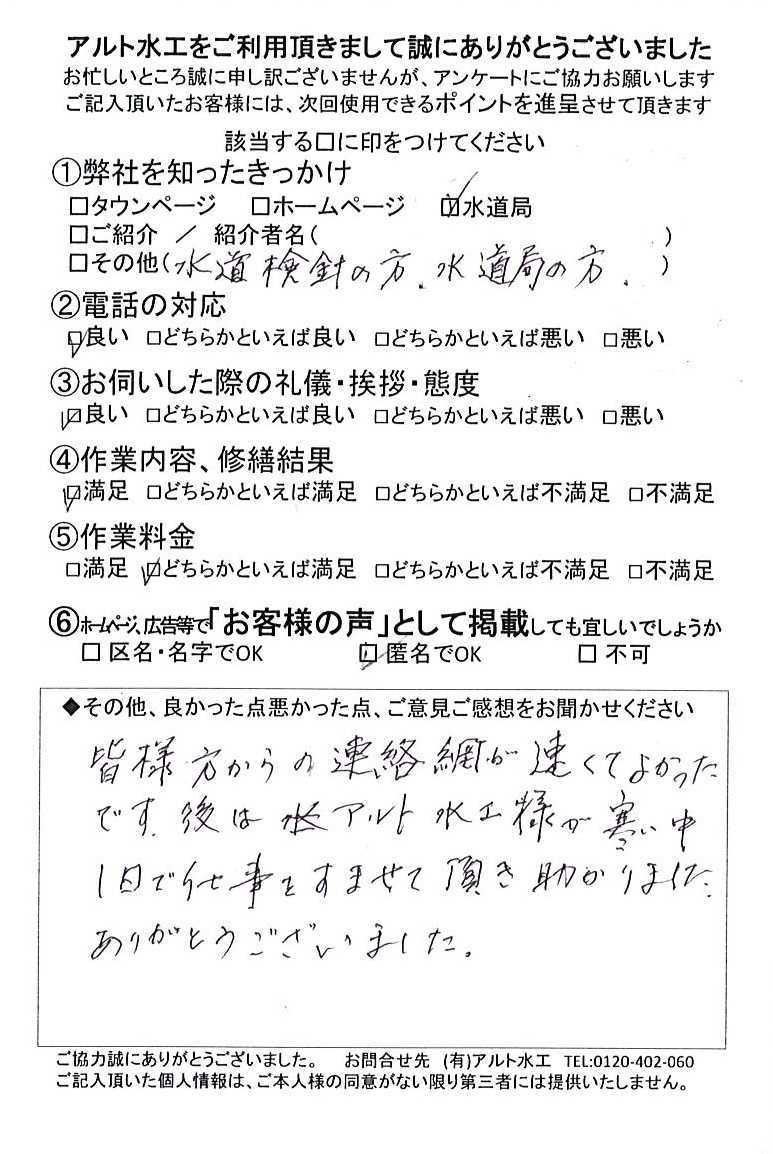 アルト水工をご利用頂きまして誠にありがとうございました
お忙しいところ誠に申し訳ございませんが、アンケートにご協力お願いします
ご記入頂いたお客様には、次回使用できるポイントを進呈させて頂きます
該当する□に印をつけてください
①弊社を知ったきっかけ
□タウンページ □ホームページ ☑水道局
□ご紹介 / 紹介者名( )
□その他(水道検針の方、水道局の方。)
②電話の対応
☑良い □どちらかといえば良い □どちらかといえば悪い □悪い
③お伺いした際の礼儀・挨拶・態度
☑良い □どちらかといえば良い □どちらかといえば悪い □悪い
④作業内容、修繕結果
☑満足 □どちらかといえば満足 □どちらかといえば不満足 □不満足
⑤作業料金
□満足 ☑どちらかといえば満足 □どちらかといえば不満足 □不満足
⑥ホームページ、広告等で「お客様の声」として掲載しても宜しいでしょうか
□ 区名・名字でOK ☑ 匿名でOK □ 不可
◆その他、良かった点悪かった点、ご意見ご感想をお聞かせください
皆様方からの連絡網が速くてよかった
です。後は アルト水工様が寒い中
1日で仕事をすませて頂き助かりました。
ありがとうございました。
ご協力誠にありがとうございました。 お問合せ先 (有)アルト水工 TEL:0120-402-060
ご記入頂いた個人情報は、ご本人様の同意がない限り第三者には提供いたしません。